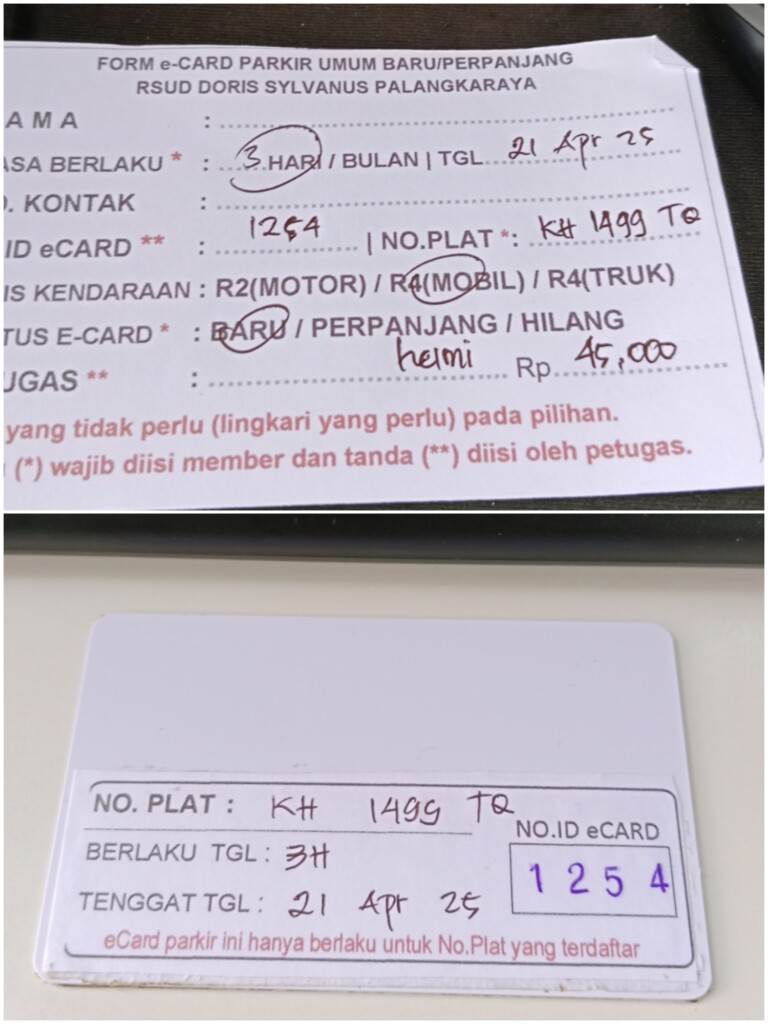 FORM e-CARD PARKIR UMUM BARU/PERPANJANG
RSUD DORIS SYLVANUS PALANGKARAYA
AMA :
ASA BERLAKU * : 3 HARI / BULAN | TGL 21 Apr 25
. KONTAK :
ID eCARD ** : 1254 | NO.PLAT *: KH 1499 TQ
IS KENDARAAN : R2(MOTOR) / R4(MOBIL) / R4(TRUK)
TUS E-CARD * : BARU / PERPANJANG / HILANG
UGAS ** : helmi Rp 45,000
yang tidak perlu (lingkari yang perlu) pada pilihan.
(*) wajib diisi member dan tanda (**) diisi oleh petugas.
NO. PLAT : KH 1499 TQ
NO.ID eCARD
BERLAKU TGL : 3H
1 2 5 4
TENGGAT TGL : 21 Apr 25
eCard parkir ini hanya berlaku untuk No.Plat yang terdaftar